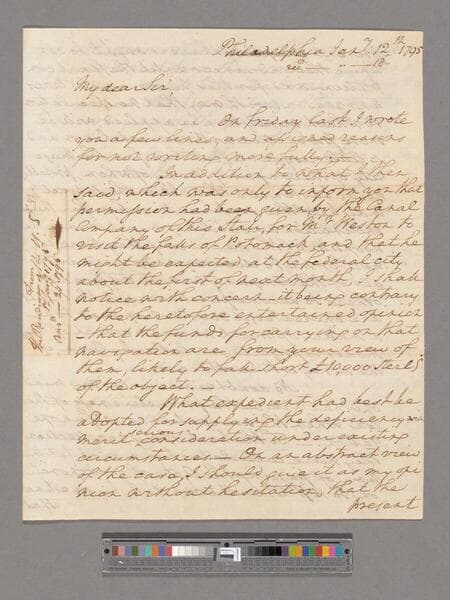 Philadelphia Jany. 12th 1795
recd — " — 18
My dear Sir,
On Friday last I wrote
you a few lines, and assigned reasons
for not writing more fully. —
In addition to what I then
said, which was only to inform you that
permission had been given by the Canal
Company of this State, for Mr. Weston to
visit the falls of Potomack, and that he
might be expected at the federal city
about the first of next month, I shall
notice with concern — it being contrary
to the heretofore entertained opinion
— that the funds for carrying on that
navigation are from your view of
them, likely to fall short £10,000 Sterlg
of the object. —
What expedient had best be
adopted for supplying the deficiency
merit serious consideration under existing
circumstances — On an abstract view
of the case, I should give it as my opi
nion without hesitation, that the
present